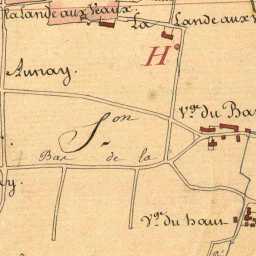 la Lande aux Veaux.
La Lande aux V
H
Aunay.
Vge. du Bas
Son
Bas de la
y.
Vge. du haut